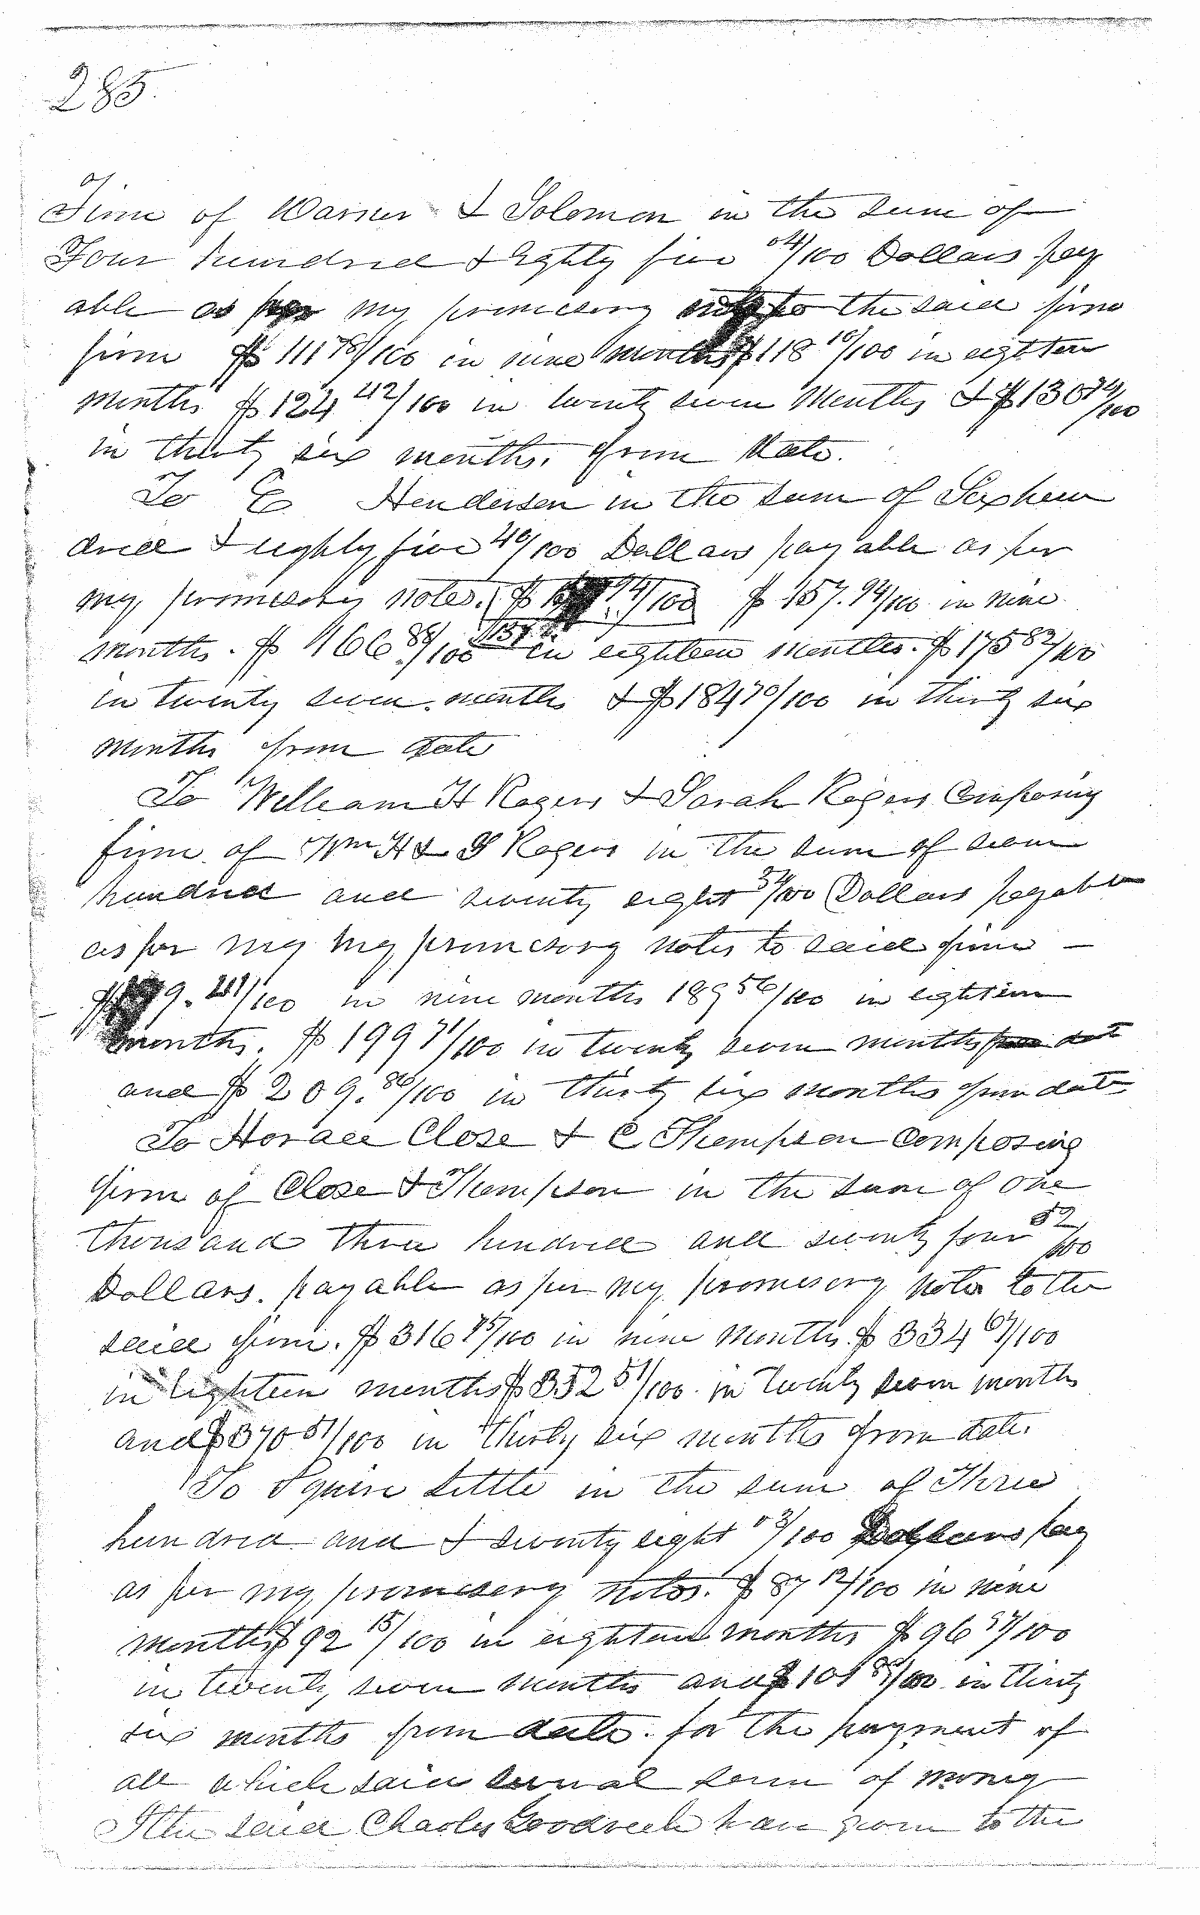 285
of
Firm of Warner & Solomon in the sum of
Four hundred & Eighty five 04/100 Dollars pay
able as per my promissory note to the said firm
firm $111 78/100 in nine months $118 10/100 in eighteen
months $124 42/100 in twenty seven Months & $130 74/100
in thirty six months. from date.
To E Henderson in the sum of Six hun
dred & eighty five 40/100 Dollars payable as per
my promissory notes. $ 94/100 $157.94/100 in nine
months. $166 88/100 in eighteen months. $175 82/100
in twenty seven months & $184 70/100 in thirty six
months from date
To William H Rogers & Sarah Rogers Composing
firm of Wm H & S Rogers in the sum of seven
hundred and seventy eight 34/100 Dollars payable
as per my my promissory notes to said firm —
$179. 21/100 in nine months 189 56/100 in eighteen
months. $199 71/100 in twenty seven months from date
and $209. 86/100 in thirty six months from date
To Horace Close & C Thompson Composing
firm of Close & Thompson in the sum of One
thousand three hundred and seventy four 52/100
Dollars. payable as per my promissory notes to the
said firm. $316 75/100 in nine months $334 67/100
in eighteen months $352 51/100 in twenty seven months
and $370 51/100 in thirty six months from date.
To Squire Little in the sum of Three
hundred and & seventy eight 03/100 Dollars pay
as per my promissory notes. $87 12/100 in nine
months $92 15/100 in eighteen months $96 97/100
in twenty seven months and $101 85/100 in thirty
six months from date. for the payment of
all which said several sum of money
I the said Charles Goodrich have given to the